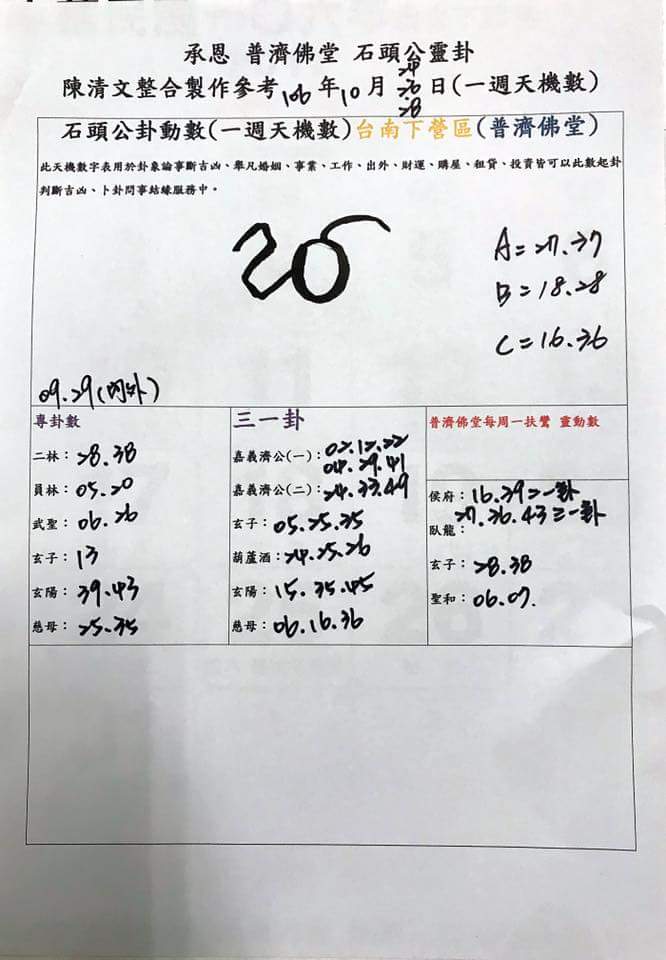 承恩 普濟佛堂 石頭公靈卦
24
陳清文整合製作參考106年10月26日(一週天機數)
28
石頭公卦動數(一週天機數)台南下營區(普濟佛堂)
此天機數字表用於卦象論事斷吉凶、舉凡婚姻、事業、工作、出外、財運、購屋、租貸、投資皆可以此數起卦
判斷吉凶、卜卦問事結緣服務中。
A=27.37
B=18.28
C=16.36
09.29(內外)
專卦數
二林：28.38
員林：05.20
武聖：06.26
玄子：13
玄陽：39.43
慈母：25.35
三一卦
嘉義濟公(一)：02.12.22
04.29.41
嘉義濟公(二)：24.33.49
玄子：05.25.35
葫蘆酒：24.25.26
玄陽：15.35.45
慈母：06.16.36
普濟佛堂每周一扶鸞 靈動數
侯府：16.39二一卦
27.36.43三一卦
臥龍：
玄子：28.38
聖和：06.07.